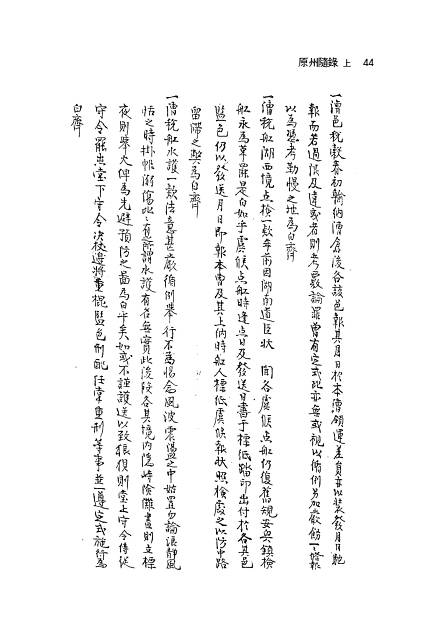 原州隨錄 上 44
一漕邑稅穀春初輸納漕倉後各該色報其月日於本漕領運差員亦以裝發月日馳
報而若過限及違式者則考覈論罪曾有定式此亦無或視以循例另加嚴飭一一報
以爲憑考勤慢之地爲白齊
一漕稅船湖西境点檢一款年前因湖南道臣狀 聞各虞候点船仍復舊規安興鎭檢
船永爲革罷是白如乎虞候点船時逢点日及發送日書于標低踏印出付於各其色
監色仍以發送月日卽報本曹及其上納時船人標低虞候報狀照檢處之以防中路
留滯之弊爲白齊
一漕稅船水護一款法意甚嚴循例擧行不爲惕念風波震盪之中姑置勿論浪靜風
恬之時掛帆所謂水護有名無實此後段各其境內隱崎險灘晝則立標
夜則擧火俾爲先避預防之啚爲白乎矣如或不謹護送以致狼復則堂上守令
守令罷黜堂下守令決杖邊將重棍監色刑配任掌重刑等事並一遵定式施行爲
白齊